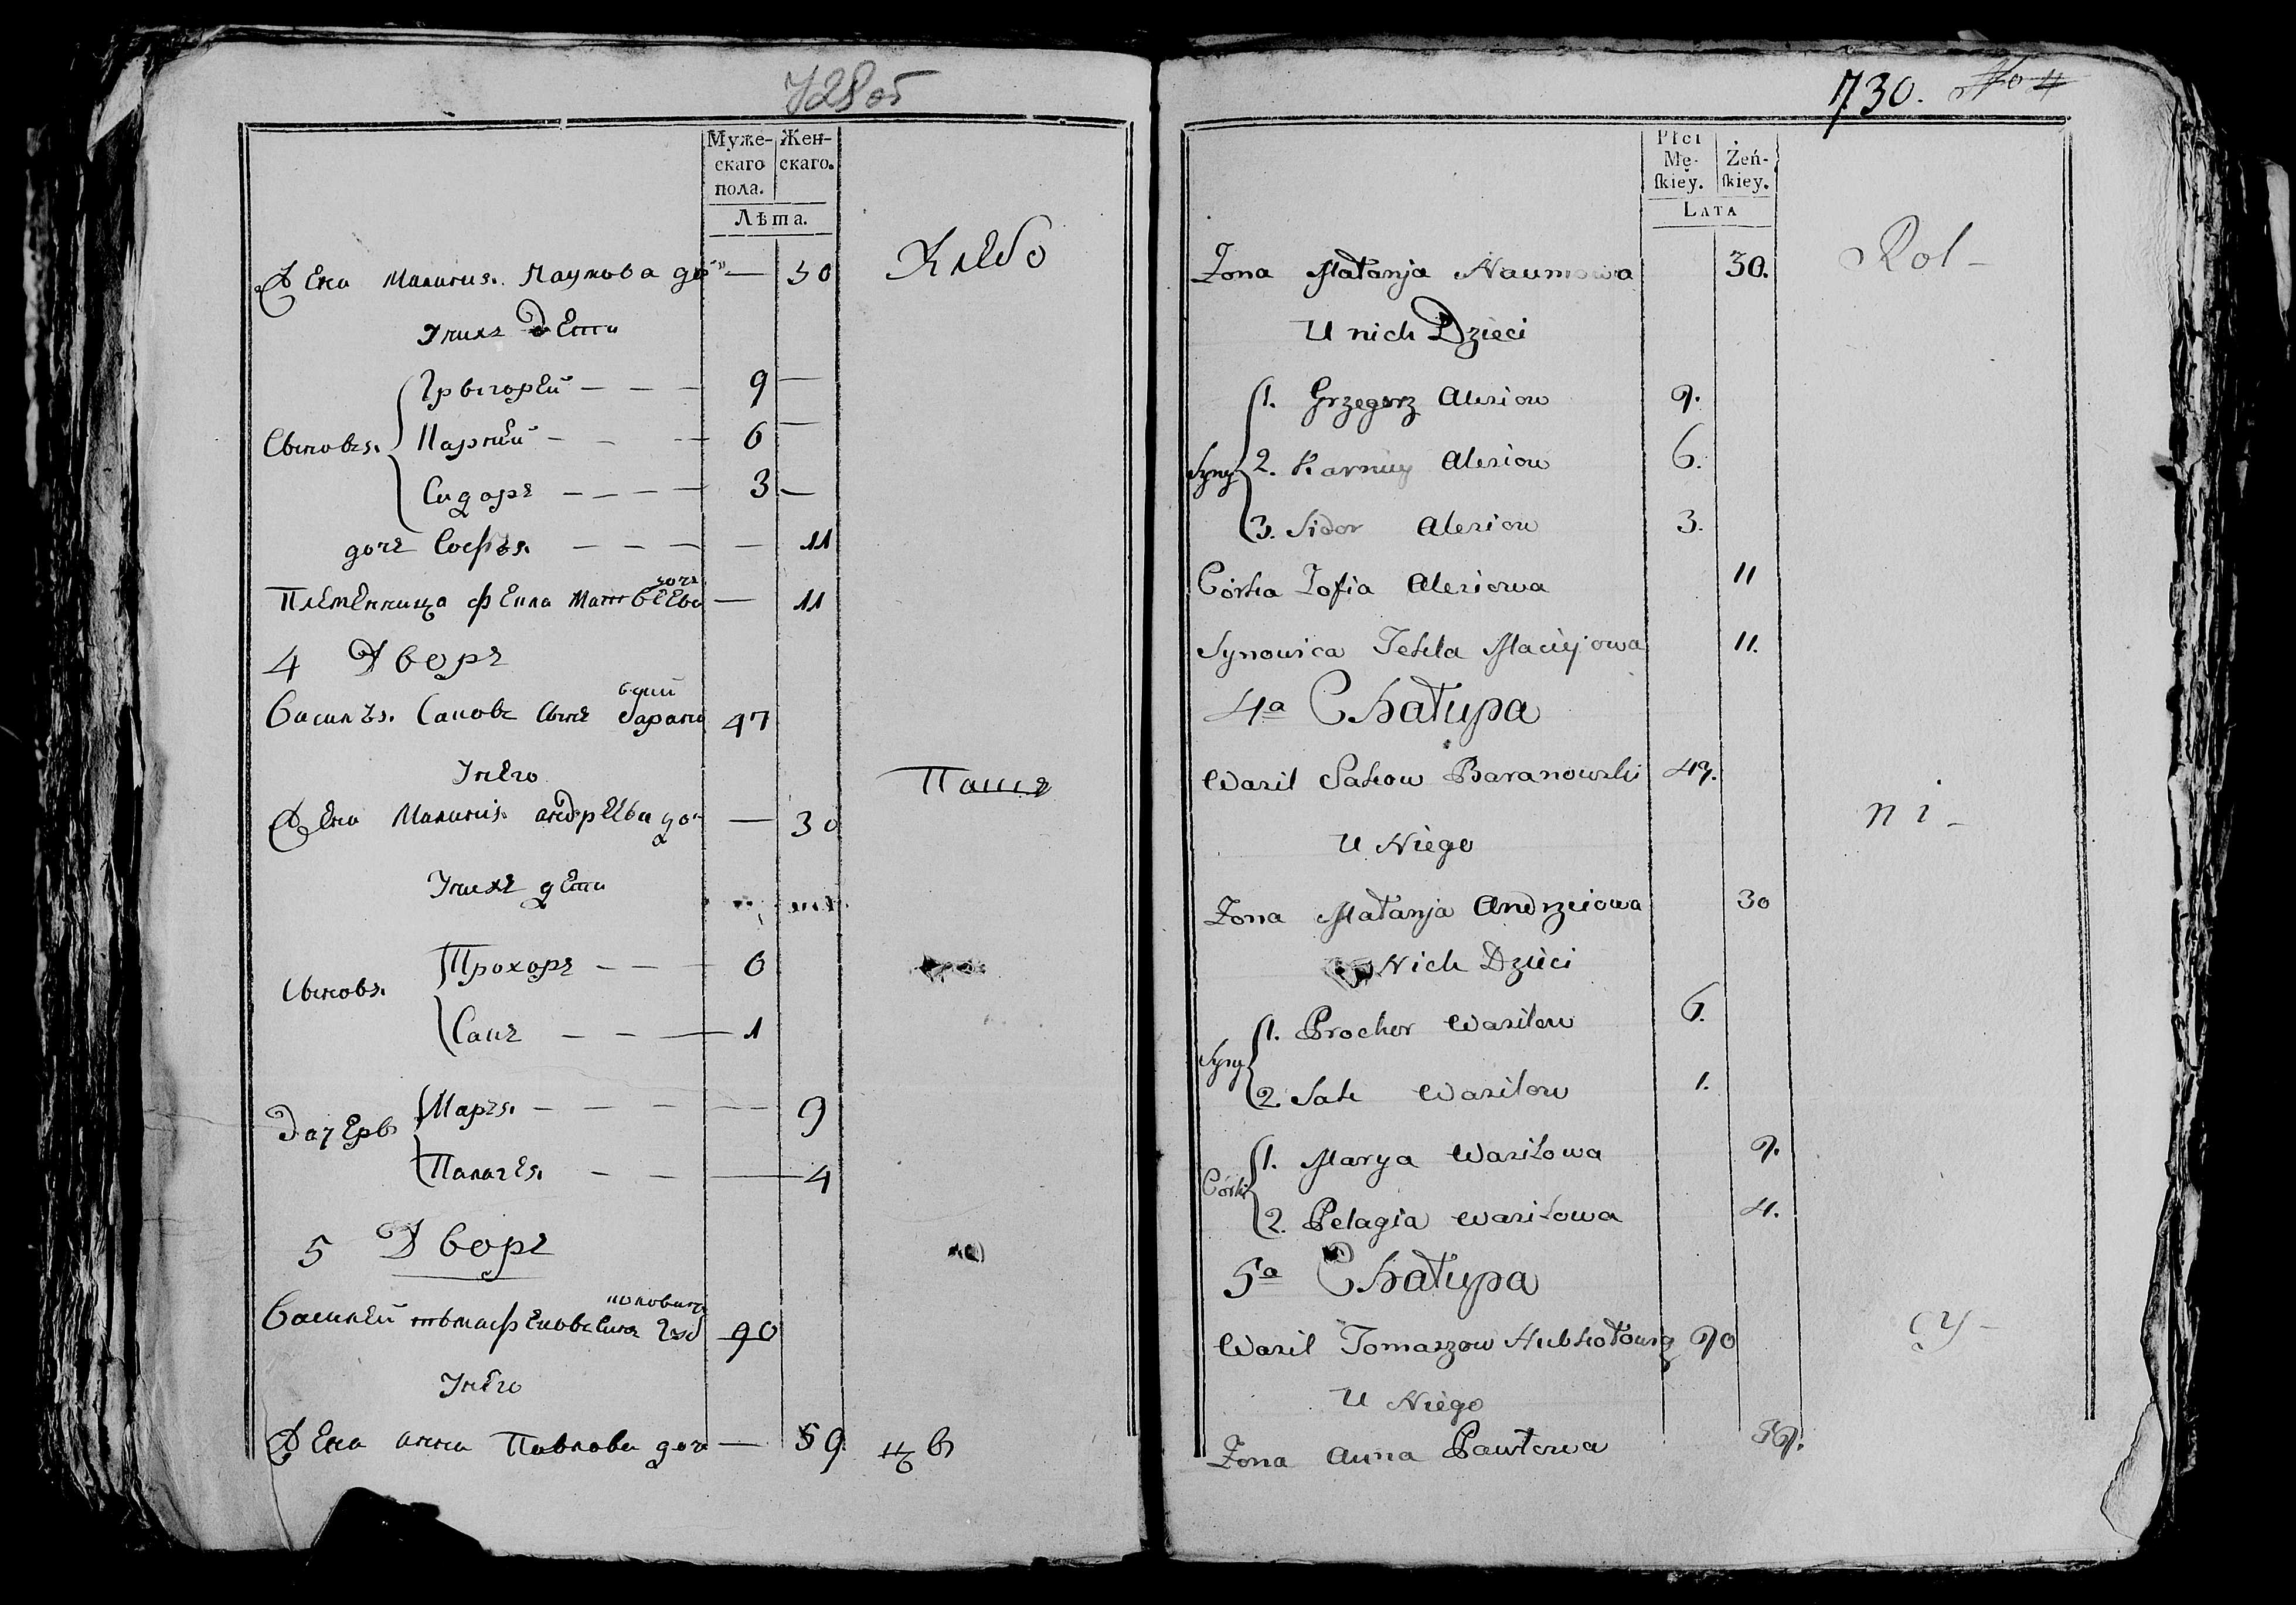 728 об
Муже-
скаго
пола.
Жен-
скаго.
Лѣта.
Жена Малания Наумова до — 30
Хлебо
У нихъ Дети
Грыгорей — — — 9 —
Сыновья Парней — — — 6 —
Сидоръ — — — — 3 —
дочь Софъя — — — — 11
доч
Племенница Фекла Матвеева — 11
4 Дворъ
вский
Василь Саковъ Сынъ Барано 47
У него
Пашъ
Жена Малания андреева до — 30
У нихъ дети
Сыновя Трохоръ — — — 6
Сакъ — — — 1
Дочеры Маръя — — — — 9
Палагея — — — 4
5 Дворъ
Василей Сынъ 90
У него
Жена анна Павлова доч — 59
цы
730. No 4
Płci
Mę-
ſkiey.
Żeń-
ſkiey.
Lata
Żona Małanja Naumowa 30.
Rol-
U nich Dzieci
Syny 1. Grzegorz Alexiow 9.
2. Karniey Alexiow 6.
3. Sidor Alexiow 3.
Córka Zofia Alexiowa 11
Synowica Tekla Maciejowa 11.
4a Chałupa
Wasil Sakow Baranowski 47.
ni-
U Niego
Żona Małanja Andrzeiowa 30
Nich Dzieci
Syny 1. Prochor Wasilow 6.
2. Sak Wasilow 1.
Córki 1. Marya Wasilowa 9.
2. Pelagia Wasilowa 4.
5a Chałupa
Wasil Tomaszow 90
cy-
U Niego
Żona Anna Pawłowa 59.